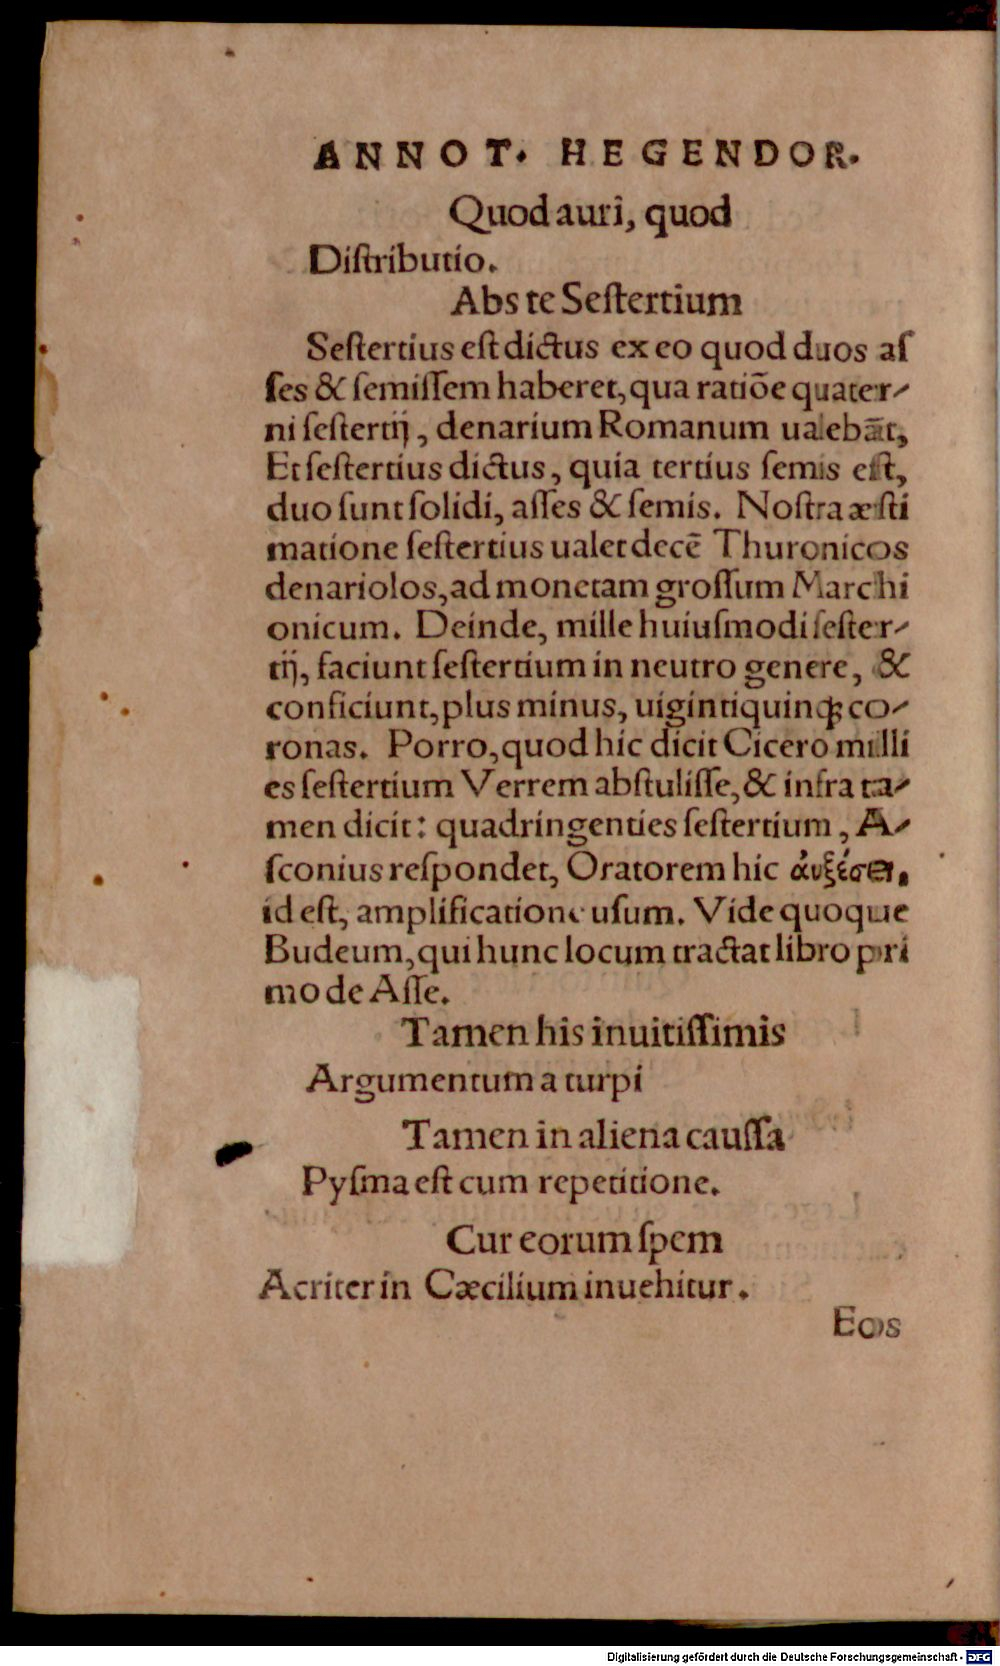 ANNOT. HEGENDOR.
Quod auri, quod
Diſtributio.
Abs te Seſtertium
Seſtertius eſt dictus ex eo quod duos aſ
ſes & ſemiſſem haberet, qua ratiōe quater-
ni ſeſtertij, denarium Romanum ualebāt,
Et ſeſtertius dictus, quia tertius ſemis eſt,
duo ſunt ſolidi, aſſes & ſemis. Noſtra æſti
matione ſeſtertius ualet decē Thuronicos
denariolos, ad monetam groſſum Marchi
onicum. Deinde, mille huiuſmodi ſeſter-
tij, faciunt ſeſtertium in neutro genere, &
conficiunt, plus minus, uigintiquinqꝫ co-
ronas. Porro, quod hic dicit Cicero milli
es ſeſtertium Verrem abſtuliſſe, & infra ta-
men dicit: quadringenties ſeſtertium, A-
ſconius reſpondet, Oratorem hic ἀυξέσει,
id eſt, amplificatione uſum. Vide quoque
Budeum, qui hunc locum tractat libro pri
mo de Aſſe.
Tamen his inuitiſſimis
Argumentum a turpi
Tamen in aliena cauſſa
Pyſma eſt cum repetitione.
Cur eorum ſpem
Acriter in Cæcilium inuehitur.
Eos
Digitalisierung gefördert durch die Deutsche Forschungsgemeinschaft - DFG